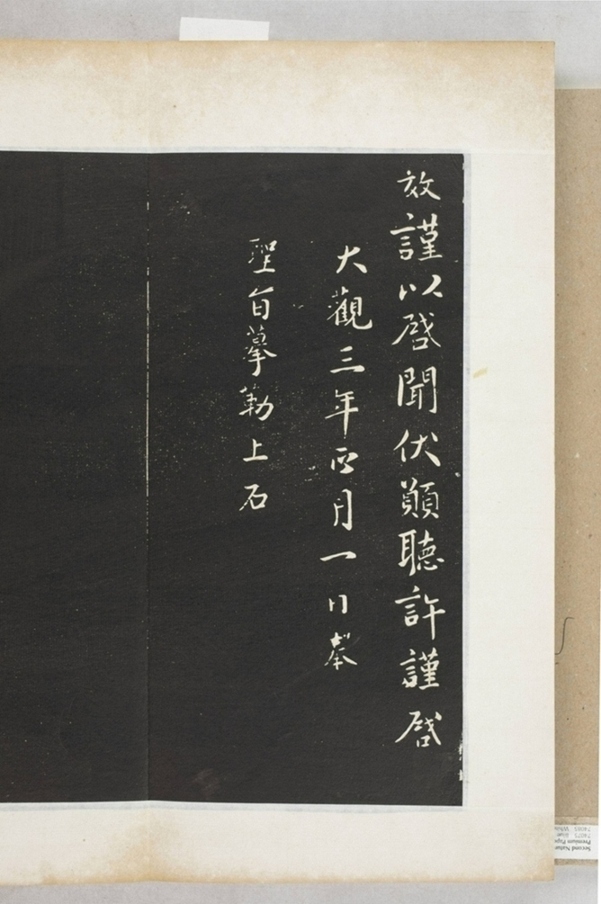 放謹以啓聞伏願聽許謹啓
大觀三年正月一日奉
聖旨摹勒上石